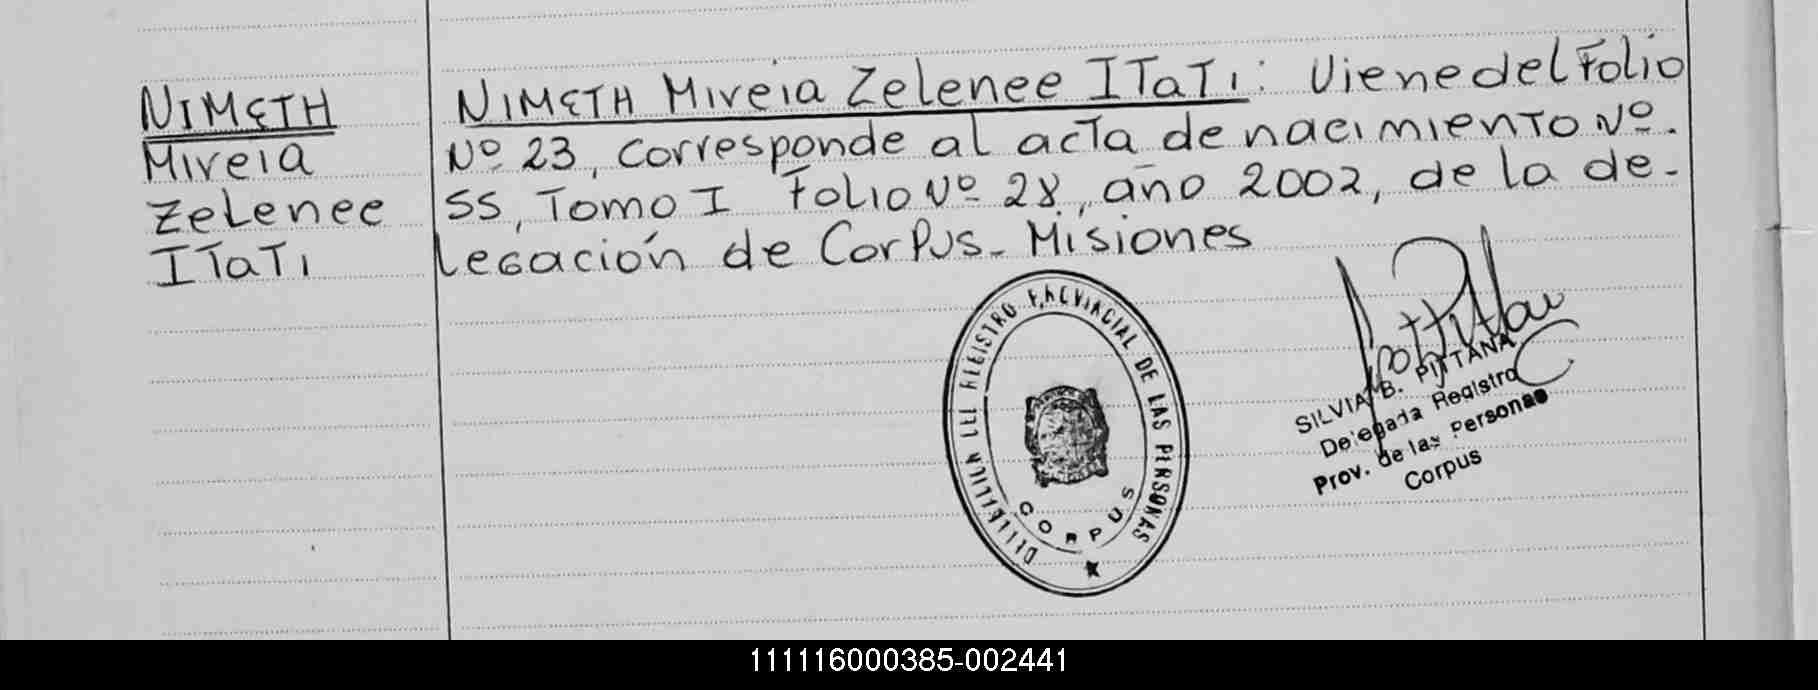 NIMETH
Mireia
Zelenee
ITaTi
NIMETH Mireia Zelenee ITaTi: Viene del Folio
Nº 23, corresponde al acta de nacimiento Nº.
55, Tomo I Folio Nº 28, año 2002, de la de-
legación de Corpus - Misiones
REGISTRO PROVINCIAL DE LAS PERSONAS
CORPUS
SILVIA B. PITTANA
Delegada Registro
Prov. de las Personas
Corpus
111116000385-002441